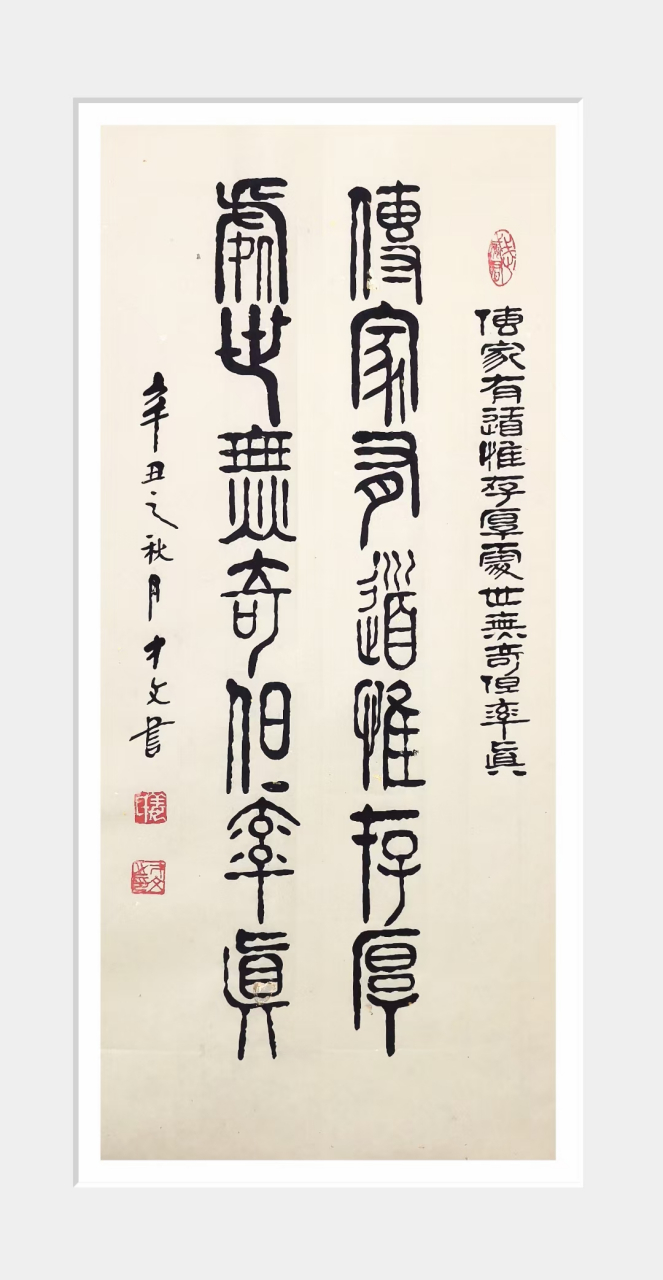 傳家有道惟存厚處世無奇但率真
傳家有道惟存厚
處世無奇但率真
辛丑之秋月才文書